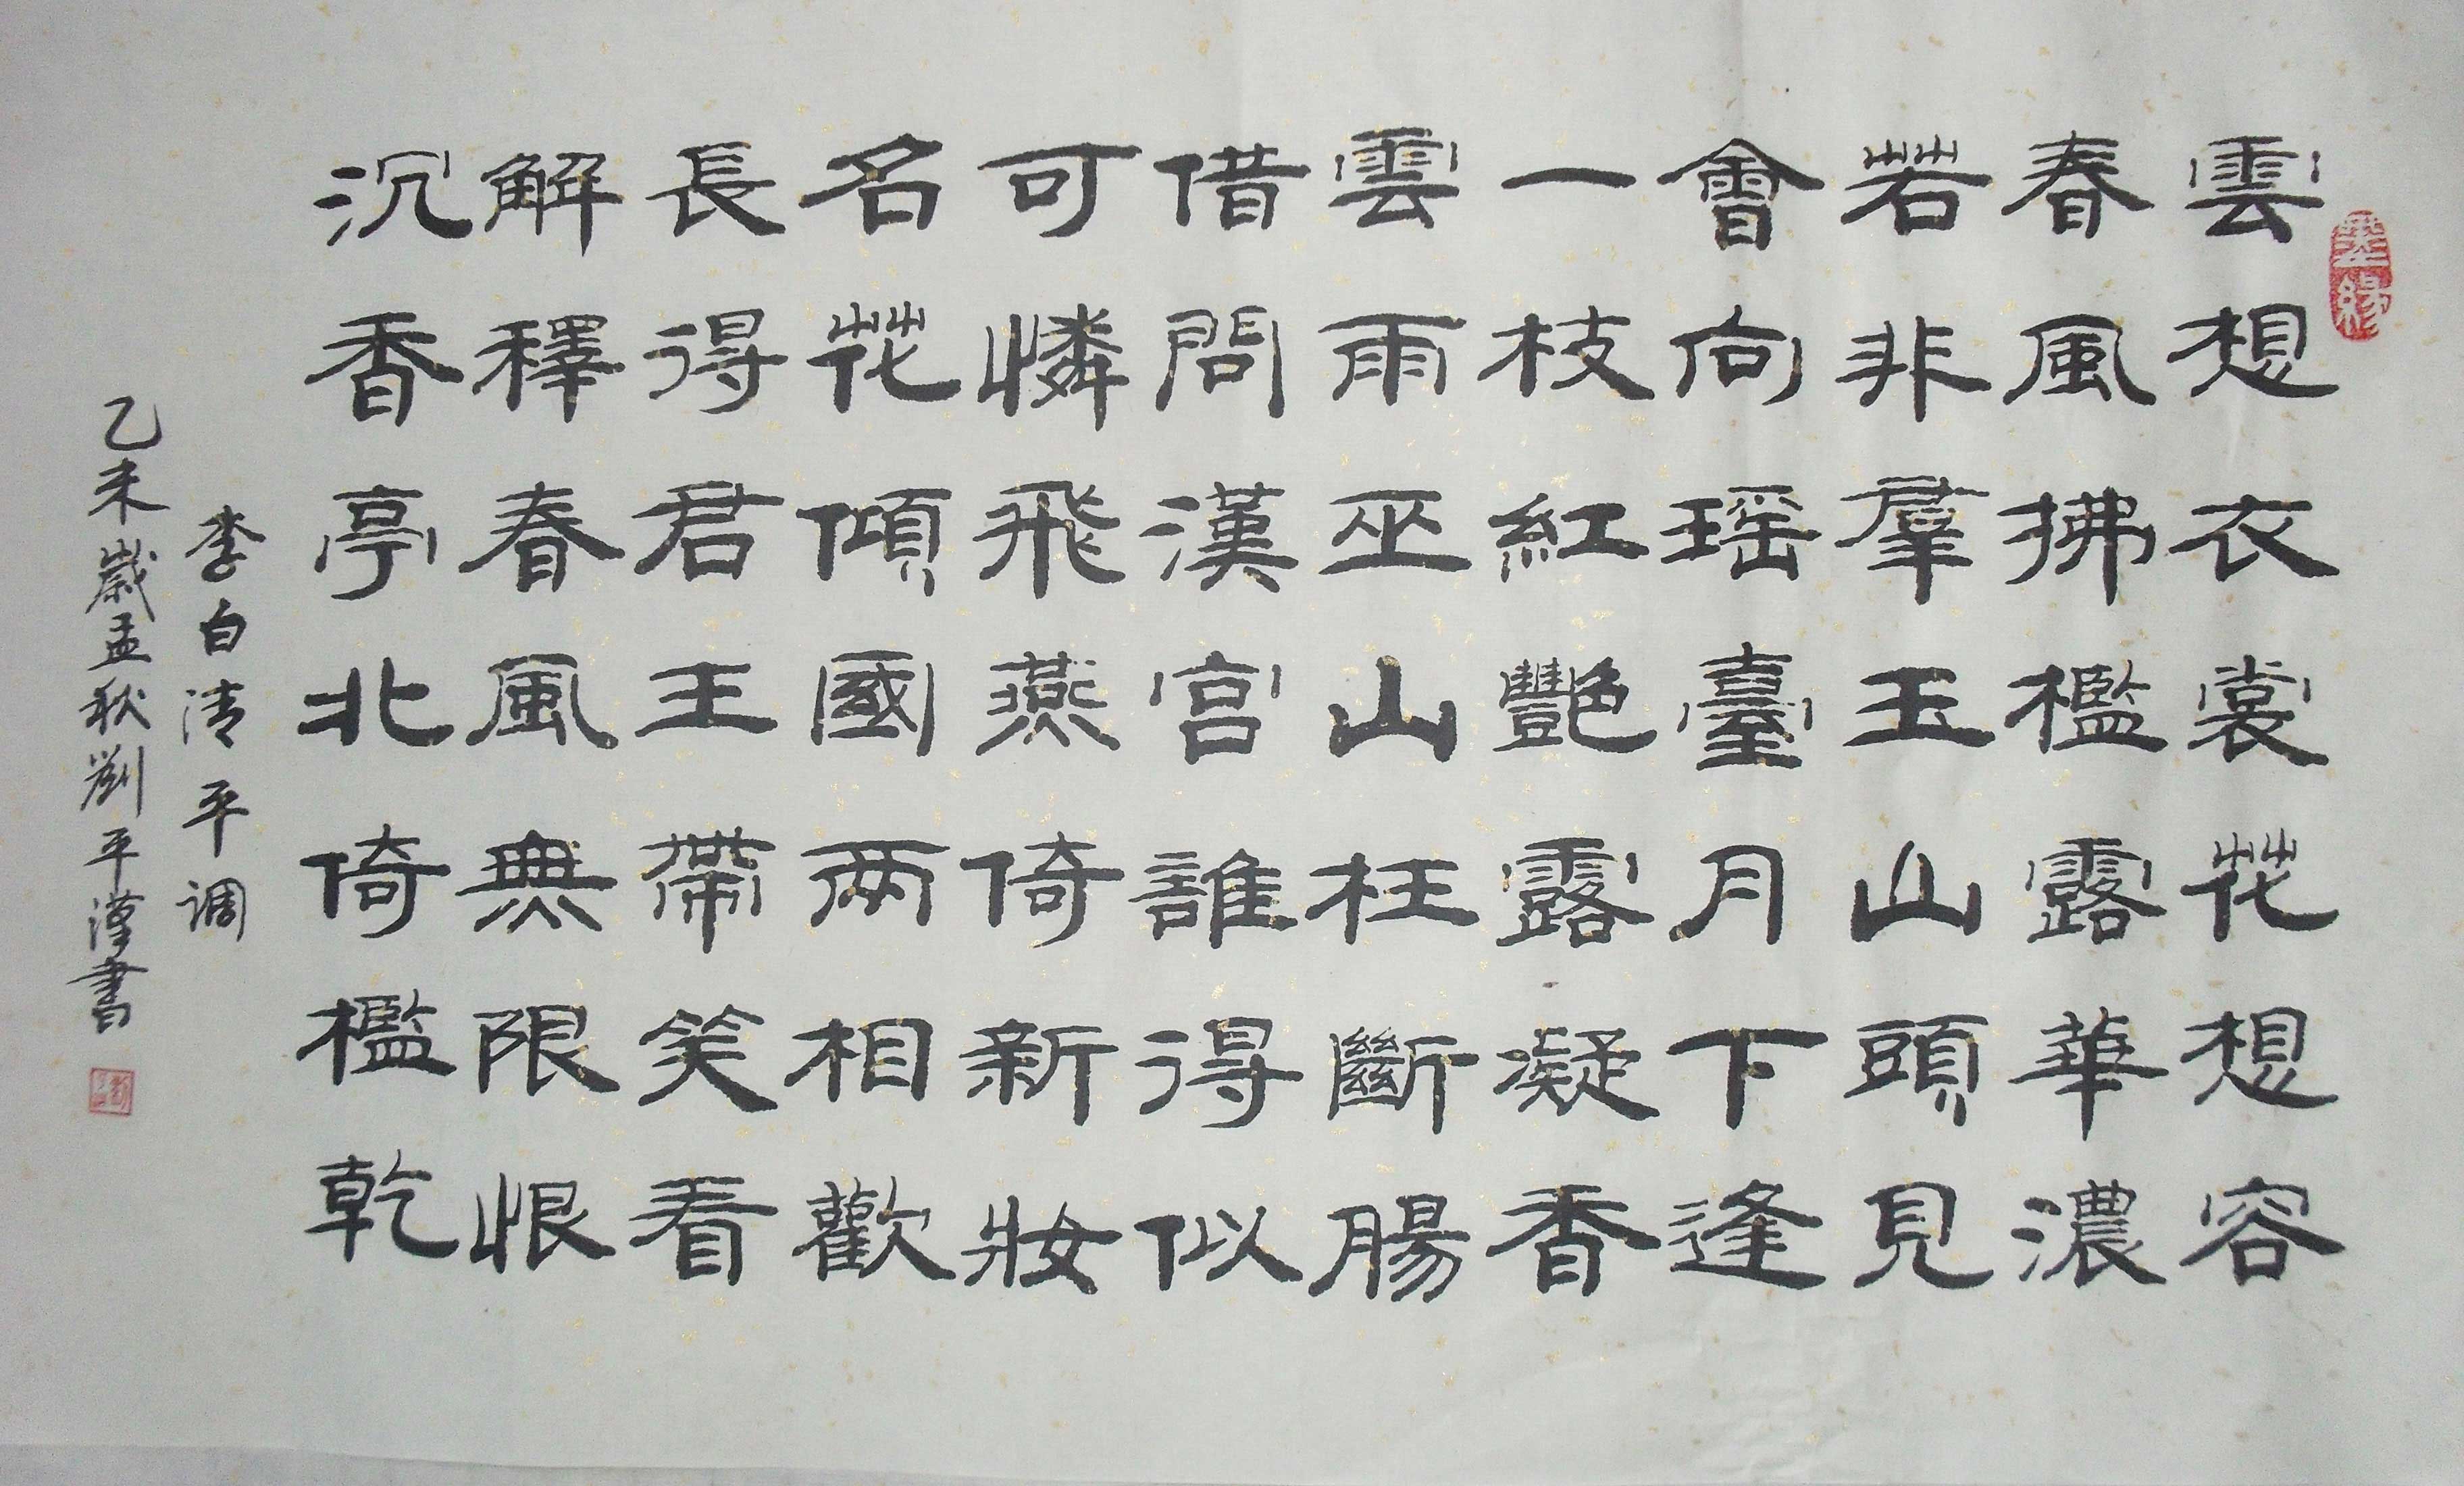 雲想衣裳花想容
春風拂檻露華濃
若非羣玉山頭見
會向瑶臺月下逢
一枝紅艷露凝香
雲雨巫山枉斷腸
借問漢宮誰得似
可憐飛燕倚新妝
名花傾國兩相歡
長得君王帶笑看
解釋春風無限恨
沉香亭北倚檻乾
李白清平调
乙未歲孟秋劉平漢書